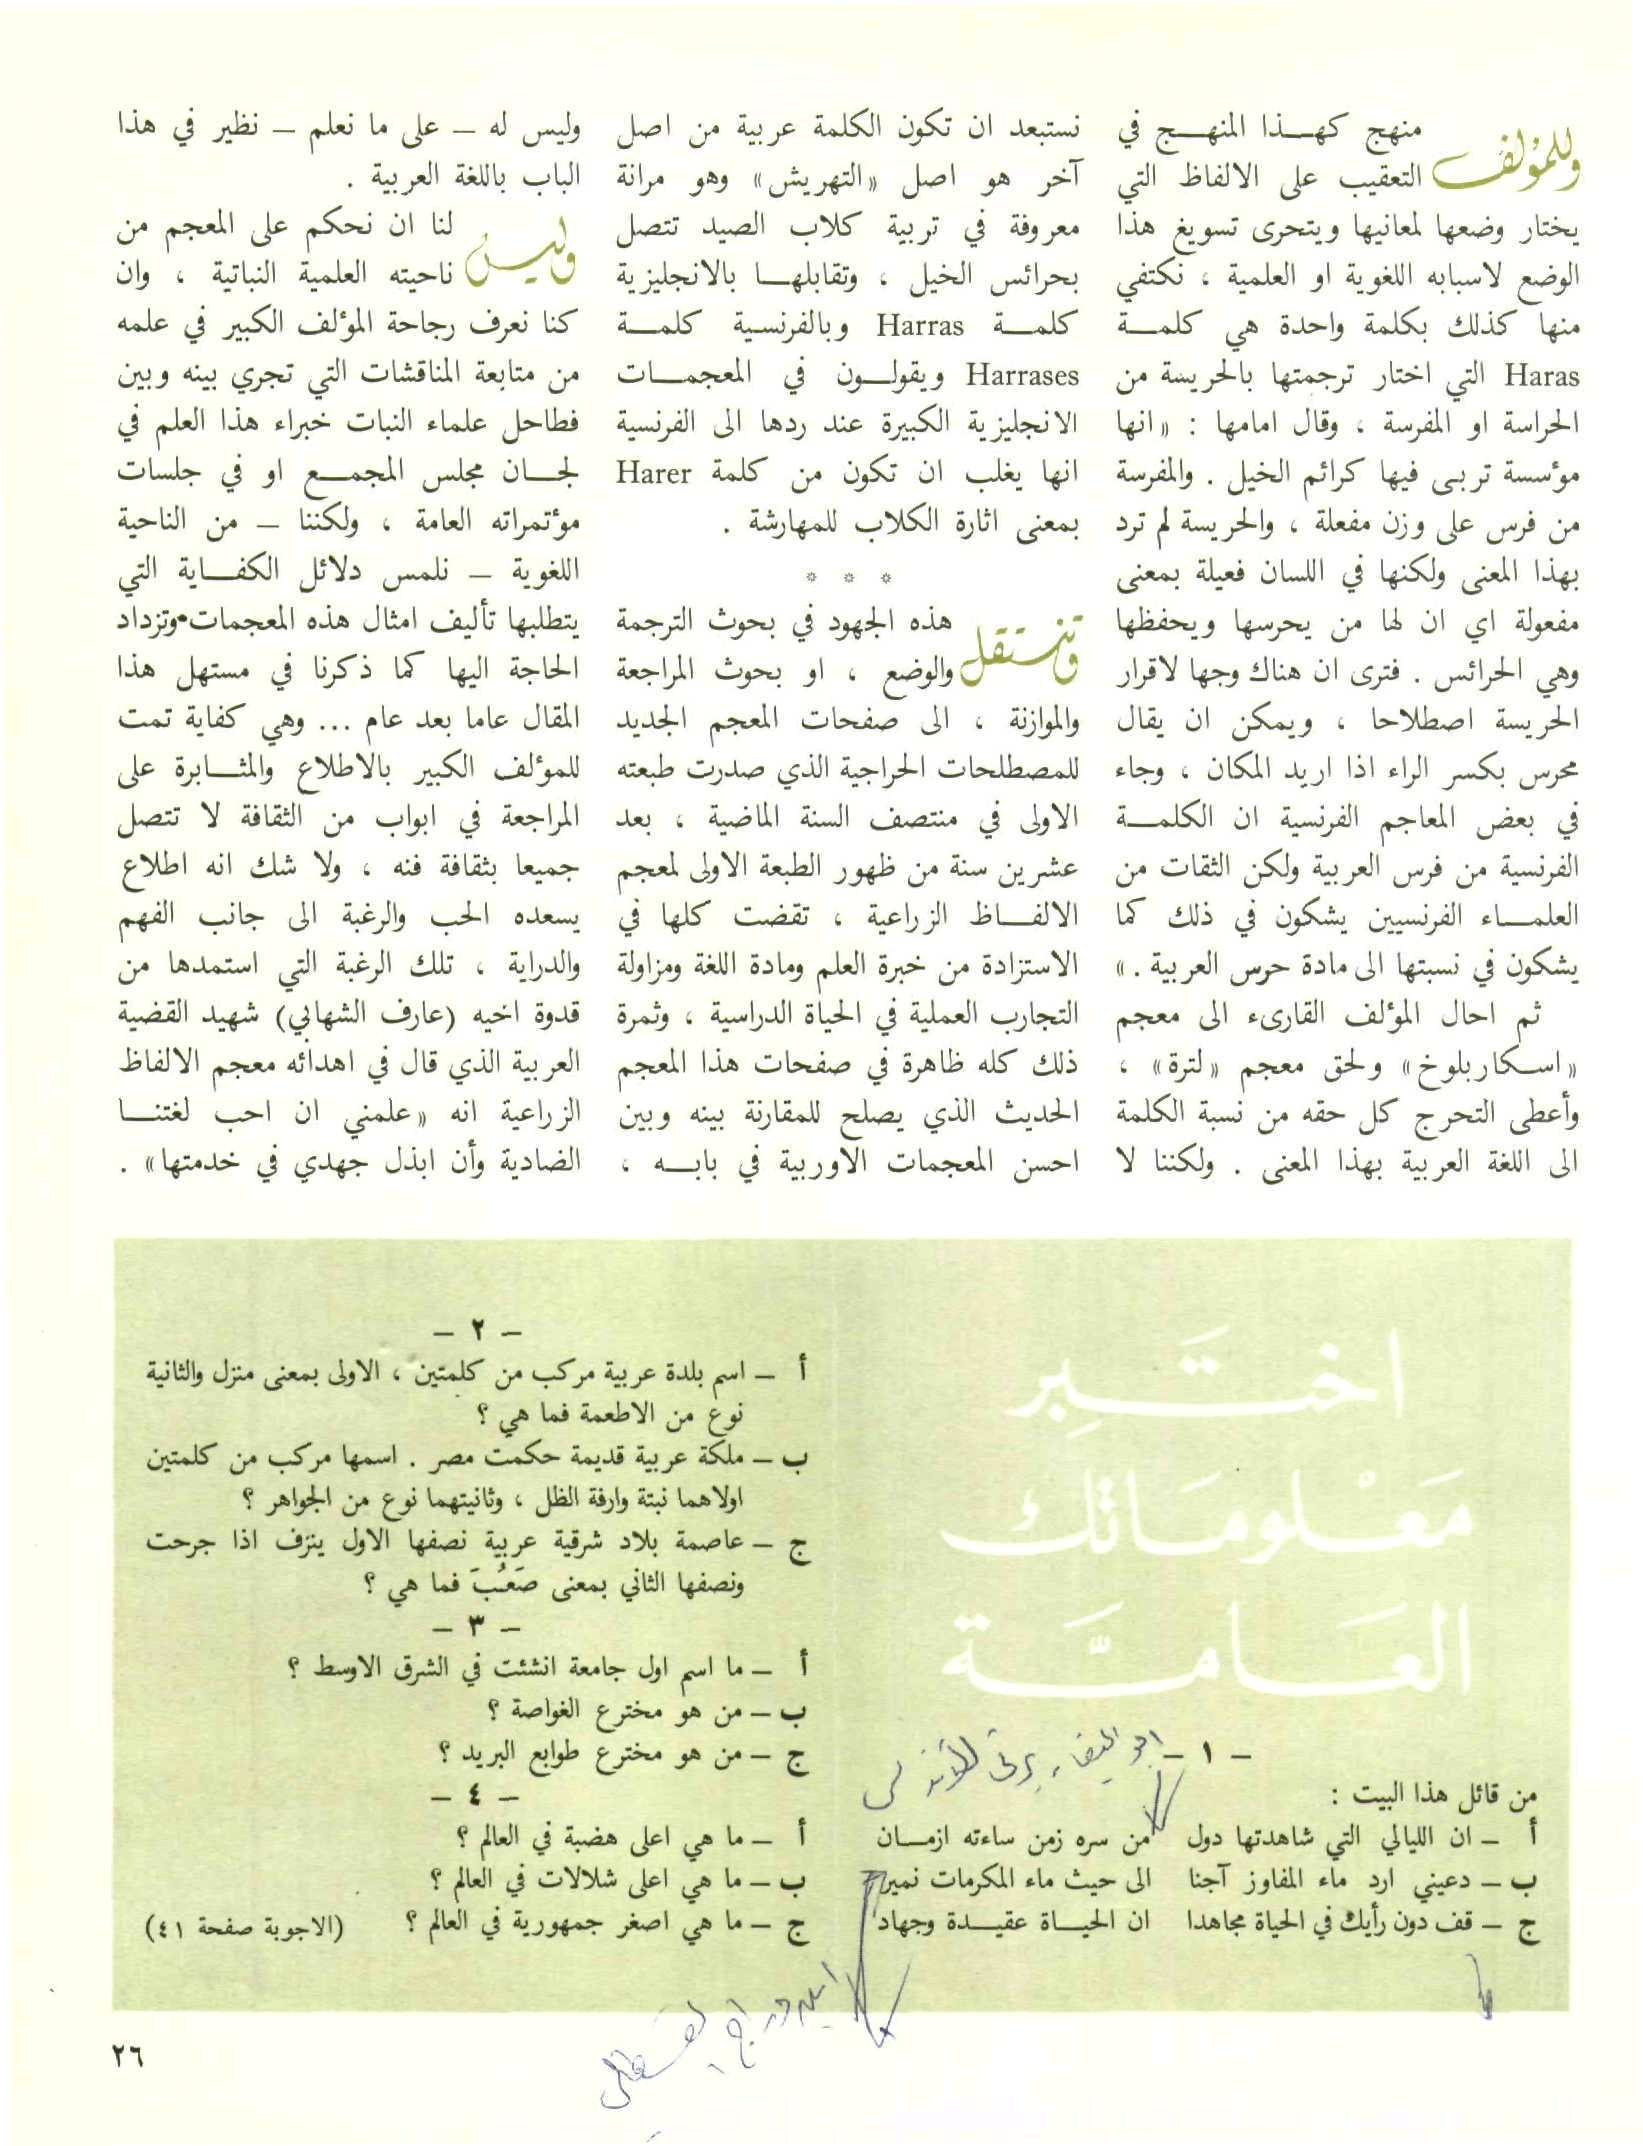 وللمؤلف منهج كهذا المنهج في
التعقيب على الالفاظ التي
يختار وضعها لمعانيها ويتحرى تسويغ هذا
الوضع لاسبابه اللغوية او العلمية ، نكتفي
منها كذلك بكلمة واحدة هي كلمة
Haras التي اختار ترجمتها بالحريسة من
الحراسة او المفرسة ، وقال امامها : « انها
مؤسسة تربى فيها كرائم الخيل . والمفرسة
من فرس على وزن مفعلة ، والحريسة لم ترد
بهذا المعنى ولكنها في اللسان فعيلة بمعنى
مفعولة اي ان لها من يحرسها ويحفظها
وهي الحرائس . فترى ان هناك وجها لاقرار
الحريسة اصطلاحا ، ويمكن ان يقال
محرس بكسر الراء اذا اريد المكان ، وجاء
في بعض المعاجم الفرنسية ان الكلمة
الفرنسية من فرس العربية ولكن الثقات من
العلماء الفرنسيين يشكون في ذلك كما
يشكون في نسبتها الى مادة حرس العربية . »
ثم احال المؤلف القارىء الى معجم
« اسكار بلوخ » ولحق معجم « لترة » ،
وأعطى التحرج كل حقه من نسبة الكلمة
الى اللغة العربية بهذا المعنى . ولكننا لا
نستبعد ان تكون الكلمة عربية من اصل
آخر هو اصل «التهريش» وهو مرانة
معروفة في تربية كلاب الصيد تتصل
بحرائس الخيل ، وتقابلها بالانجليزية
كلمة Harras وبالفرنسية كلمة
Harrases ويقولون في المعجمات
الانجليزية الكبيرة عند ردها الى الفرنسية
انها يغلب ان تكون من كلمة Harer
بمعنى اثارة الكلاب للمهارشة .
* * *
وتنتقل هذه الجهود في بحوث الترجمة
والوضع ، او بحوث المراجعة
والموازنة ، الى صفحات المعجم الجديد
للمصطلحات الحراجية الذي صدرت طبعته
الاولى في منتصف السنة الماضية ، بعد
عشرين سنة من ظهور الطبعة الاولى لمعجم
الالفاظ الزراعية ، تقضت كلها في
الاستزادة من خبرة العلم ومادة اللغة ومزاولة
التجارب العملية في الحياة الدراسية ، وثمرة
ذلك كله ظاهرة في صفحات هذا المعجم
الحديث الذي يصلح للمقارنة بينه وبين
احسن المعجمات الاوربية في بابه ،
وليس له – على ما نعلم – نظير في هذا
الباب باللغة العربية .
وليس لنا ان نحكم على المعجم من
ناحيته العلمية النباتية ، وان
كنا نعرف رجاحة المؤلف الكبير في علمه
من متابعة المناقشات التي تجري بينه وبين
فطاحل علماء النبات خبراء هذا العلم في
لجان مجلس المجمع او في جلسات
مؤتمراته العامة ، ولكننا – من الناحية
اللغوية – نلمس دلائل الكفاية التي
يتطلبها تأليف امثال هذه المعجمات وتزداد
الحاجة اليها كما ذكرنا في مستهل هذا
المقال عاما بعد عام ... وهي كفاية تمت
للمؤلف الكبير بالاطلاع والمثابرة على
المراجعة في ابواب من الثقافة لا تتصل
جميعا بثقافة فنه ، ولا شك انه اطلاع
يسعده الحب والرغبة الى جانب الفهم
والدراية ، تلك الرغبة التي استمدها من
قدوة اخيه (عارف الشهابي) شهيد القضية
العربية الذي قال في اهدائه معجم الالفاظ
الزراعية انه « علمني ان احب لغتنا
الضادية وأن ابذل جهدي في خدمتها» .
اختَبِر
مَعْلومَاتك
العَامَّة
– ١ –
ابو البقاء يرثي الأندلس
من قائل هذا البيت :
أ – ان الليالي التي شاهدتها دول من سره زمن ساءته ازمان
ب – دعيني ارد ماء المفاوز آجنا الى حيث ماء المكرمات نمير
ج – قف دون رأيك في الحياة مجاهدا ان الحياة عقيدة وجهاد
– ٢ –
أ – اسم بلدة عربية مركب من كلمتين ، الاولى بمعنى منزل والثانية
نوع من الاطعمة فما هي ؟
ب – ملكة عربية قديمة حكمت مصر . اسمها مركب من كلمتين
اولاهما نبتة وارفة الظل ، وثانيتهما نوع من الجواهر ؟
ج – عاصمة بلاد شرقية عربية نصفها الاول ينزف اذا جرحت
ونصفها الثاني بمعنى صَعُبَ فما هي ؟
– ٣ –
أ – ما اسم اول جامعة انشئت في الشرق الاوسط ؟
ب – من هو مخترع الغواصة ؟
ج – من هو مخترع طوابع البريد ؟
– ٤ –
أ – ما هي اعلى هضبة في العالم ؟
ب – ما هي اعلى شلالات في العالم ؟
ج – ما هي اصغر جمهورية في العالم ؟ (الاجوبة صفحة ٤١)
٢٦